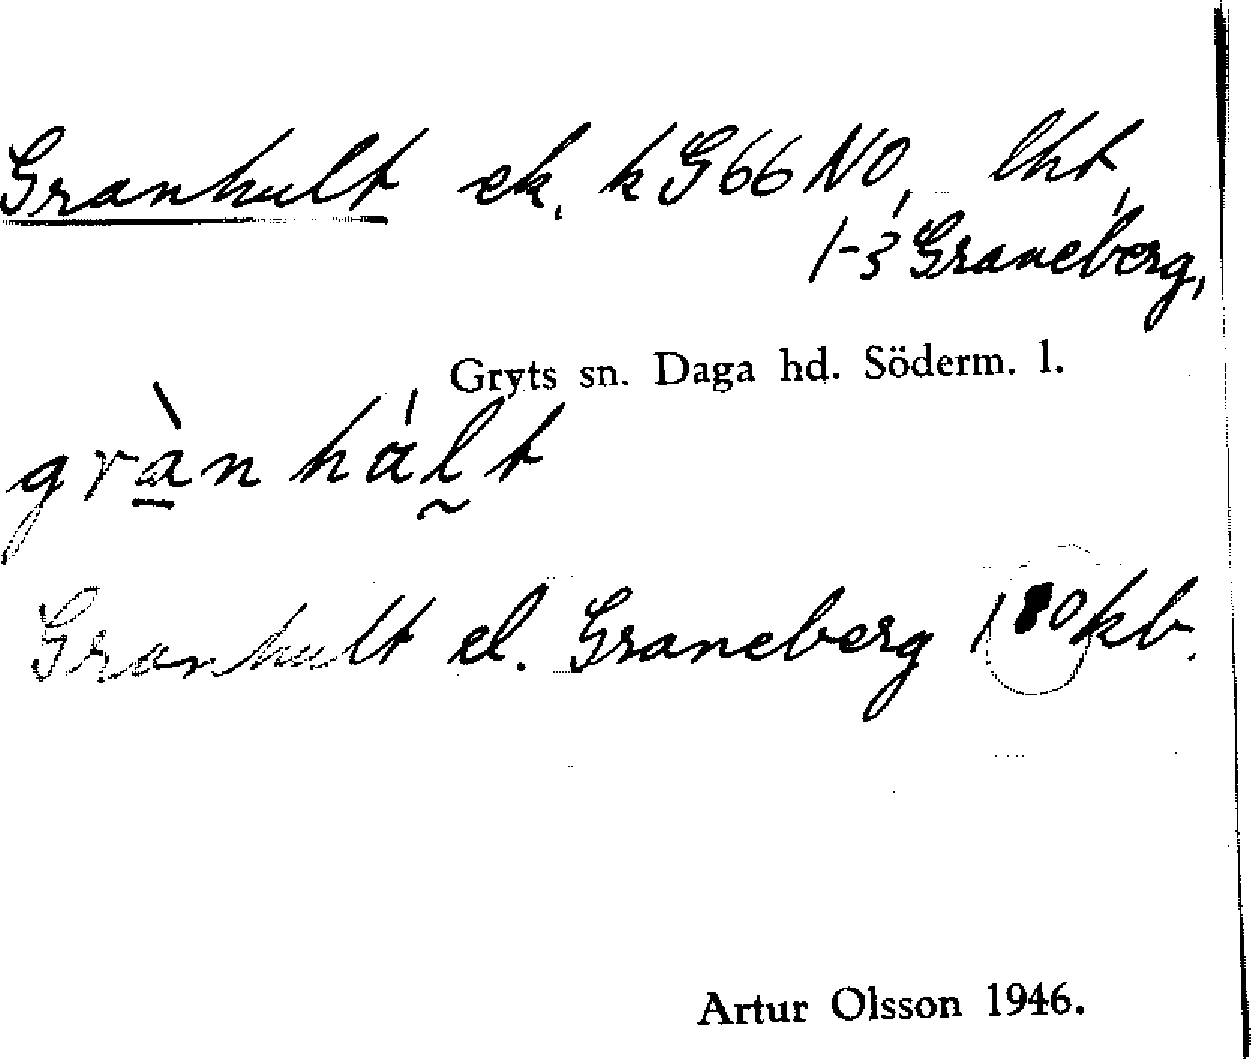 Granhult ek. k G66 NO, lht,
1-3 Graneberg,
Gryts sn. Daga hd. Söderm. l.
grànhál̰t
Granhult el. Graneberg kb.
Artur Olsson 1946.